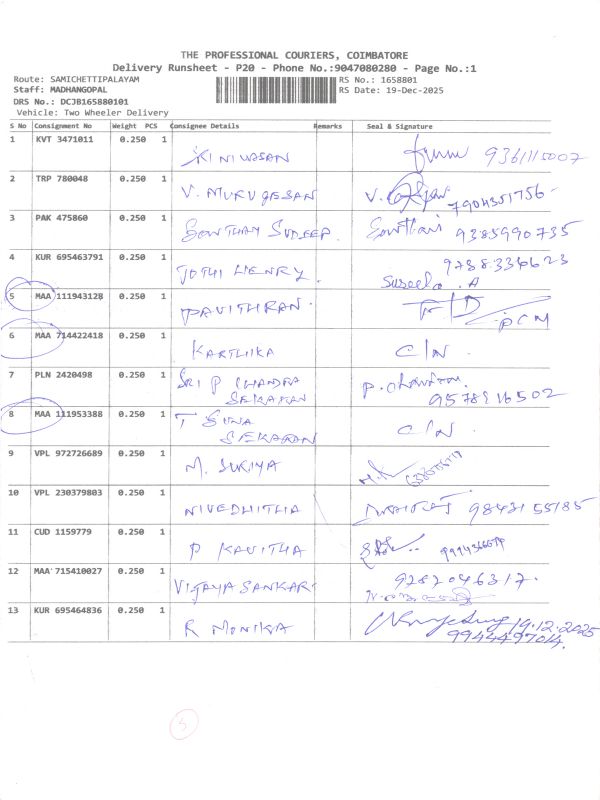 THE PROFESSIONAL COURIERS, COIMBATORE
Delivery Runsheet - P20 - Phone No.:9047080280 - Page No.:1
Route: SAMICHETTIPALAYAM RS No.: 1658801
Staff: MADHANGOPAL RS Date: 19-Dec-2025
DRS No.: DCJB165880101
Vehicle: Two Wheeler Delivery
S No Consignment No Weight PCS Consignee Details Remarks Seal & Signature
1 KVT 3471011 0.250 1
9361115007
2 TRP 780048 0.250 1 V. MURUGESAN V. 7904351756
3 PAK 475860 0.250 1 GOWTHAM SUDEEP. Gowtham 9385990735
4 KUR 695463791 0.250 1 JOTHI HENRY. Suseela. A 9788334623
5 MAA 111943128 0.250 1 PAVITHRAN.
6 MAA 714422418 0.250 1 KARTHIKA C/N
7 PLN 2420498 0.250 1 SRI P CHANDRA SEKARAN 9578916502
8 MAA 111953388 0.250 1 T GUNA SEKARAN C/N
9 VPL 972726689 0.250 1 M. SURIYA
10 VPL 230379803 0.250 1 NIVEDHITHA 9843155185
11 CUD 1159779 0.250 1 P KAVITHA
12 MAA 715410027 0.250 1 VIJAYA SANKAR 9282046317.
13 KUR 695464836 0.250 1 R MONIKA 19.12.2025
9944497014